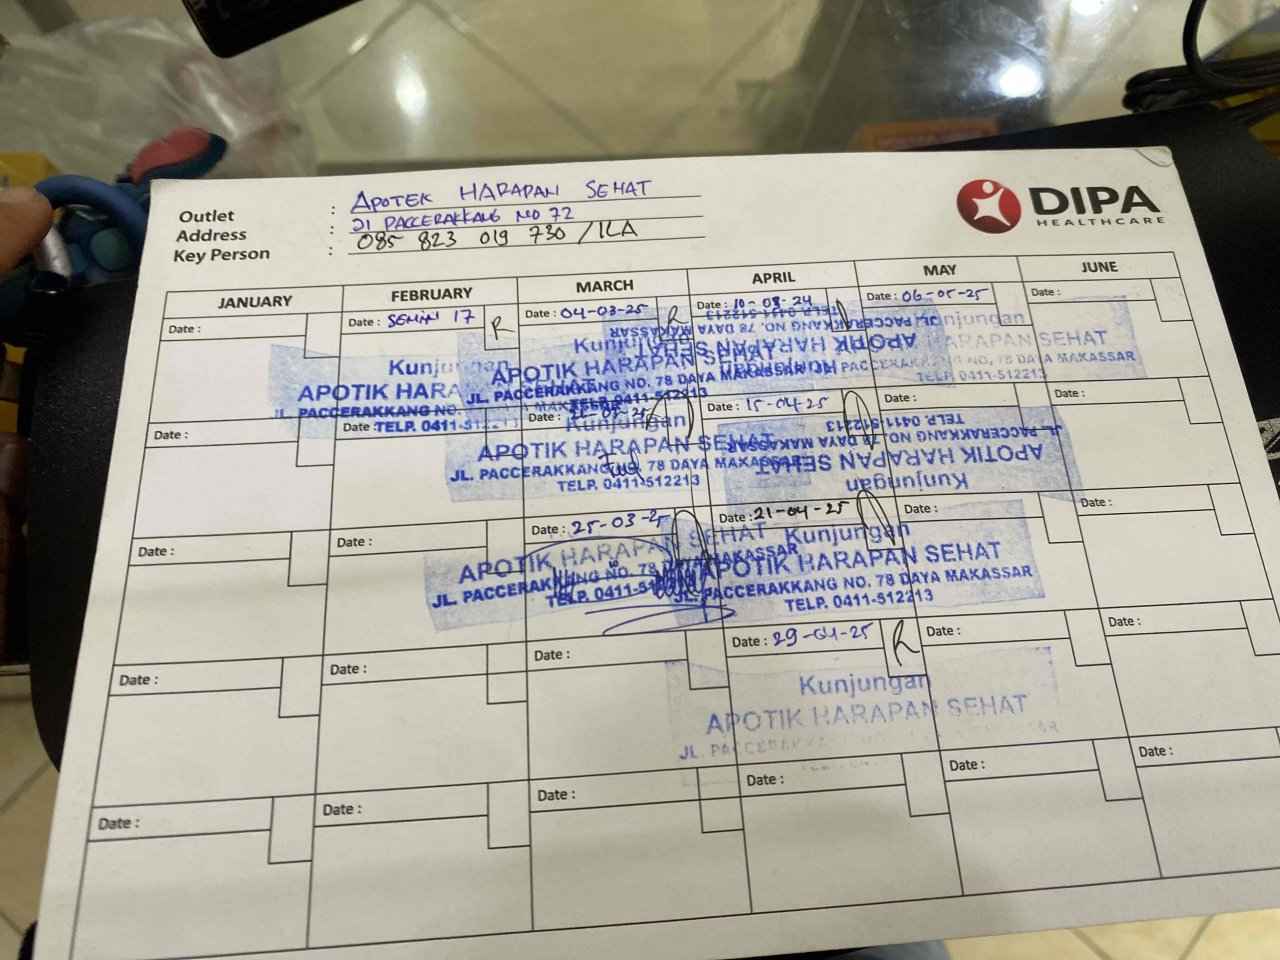 Outlet : APOTEK HARAPAN SEHAT
Address : Jl PACCERAKKANG NO 72
Key Person : 085 823 019 730 / ILA
DIPA
HEALTHCARE
JANUARY FEBRUARY MARCH APRIL MAY JUNE
Date : Date : SENIN 17 R Date : 04-03-25 R Date : 10-08-24 Date : 06-05-25 Date :
Kunjungan
APOTIK HARA
JL. PACCERAKKANG NO.
TELP. 0411-512
Kunjungan
APOTIK HARAPAN SEHAT
JL. PACCERAKKANG NO. 78 DAYA MAKASSAR
TELP.
Kunjungan
APOTIK HARAPAN SEHAT
JL. PACCERAKKANG NO. 78 DAYA MAKASSAR
TELP. 0411-512213
Kunjungan
HARAPAN SEHAT
JL. PACCERAKKANG NO. 78 DAYA MAKASSAR
TELP. 0411-512213
Date : Date : Date : Date : 15-04-25 Date : Date :
Kunjungan
APOTIK HARAPAN SEHAT
JL. PACCERAKKANG NO. 78 DAYA MAKASSAR
TELP. 0411-512213
Kunjungan
APOTIK HARAPAN SEHAT
JL. PACCERAKKANG NO. 78 DAYA MAKASSAR
TELP. 0411-512213
Date : Date : Date : 25-03-25 Date : 21-04-25 Date : Date :
APOTIK HARAPAN SEHAT
JL. PACCERAKKANG NO. 78 DAYA MAKASSAR
TELP. 0411-5
Kunjungan
APOTIK HARAPAN SEHAT
JL. PACCERAKKANG NO. 78 DAYA MAKASSAR
TELP. 0411-512213
Date : Date : Date : Date : 29-04-25 R Date : Date :
Kunjungan
APOTIK HARAPAN SEHAT
JL. PACCERAKKANG
Date : Date : Date : Date : Date : Date :